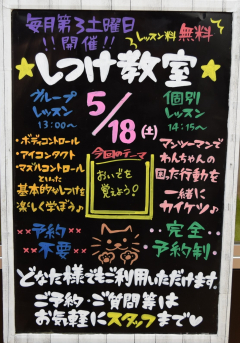 毎月第3土曜日
!!開催!!
レッスン料 無料
★しつけ教室★
グループ
レッスン
13:00〜
・ボディコントロール
・アイコンタクト
・マズルコントロール
といった
基本的なしつけを
楽しく学ぼう♪
××予約××
不要
5/18(土)
今回のテーマ
おいでを
覚えよう!
個別
レッスン
14:15〜
マンツーマンで
わんちゃんの
困った行動を
一緒に
カイケツ♪
完全
予約制
どなた様でもご利用いただけます。
ご予約・ご質問等は
お気軽にスタッフまで♡